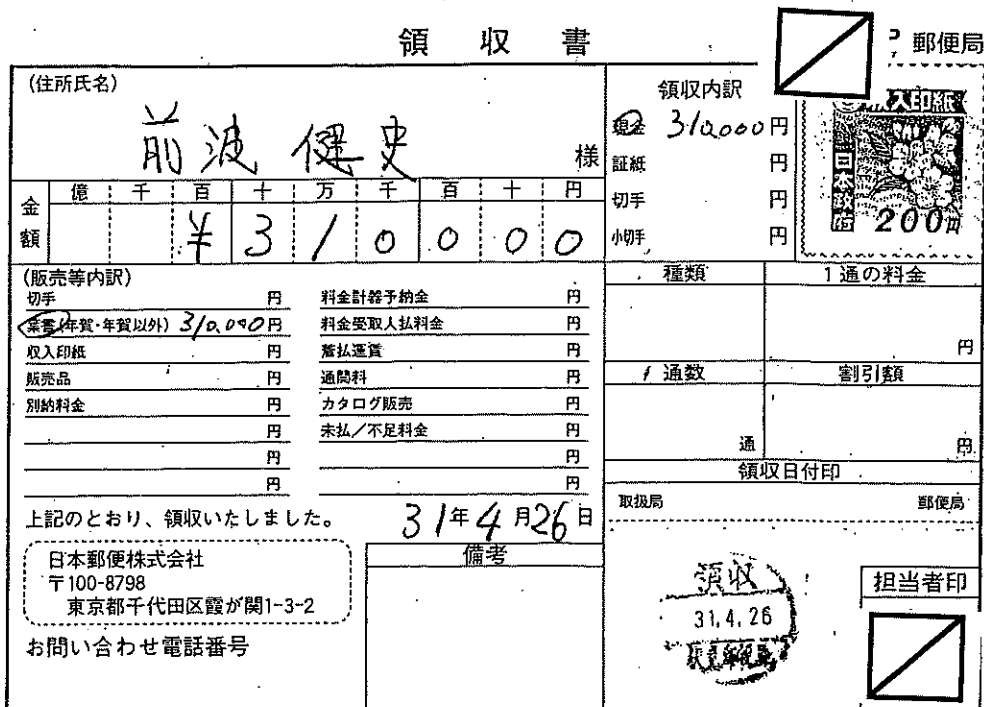 領収書
郵便局
(住所氏名)
前波健史 様
領収内訳
現金 310,000円
証紙 円
切手 円
小切手 円
収入印紙
日本政府
200円
金額
億 千 百 十 万 千 百 十 円
¥ 3 1 0 0 0 0
(販売等内訳)
切手 円
葉書(年賀・年賀以外) 310,000円
収入印紙 円
販売品 円
別納料金 円
円
円
円
料金計器予納金 円
料金受取人払料金 円
着払運賃 円
通関料 円
カタログ販売 円
未払/不足料金 円
円
円
種類
1通の料金
円
通数
割引額
通
円
領収日付印
取扱局
郵便局
上記のとおり、領収いたしました。
31年4月26日
日本郵便株式会社
〒100-8798
東京都千代田区霞が関1-3-2
お問い合わせ電話番号
備考
領収
31.4.26
担当者印